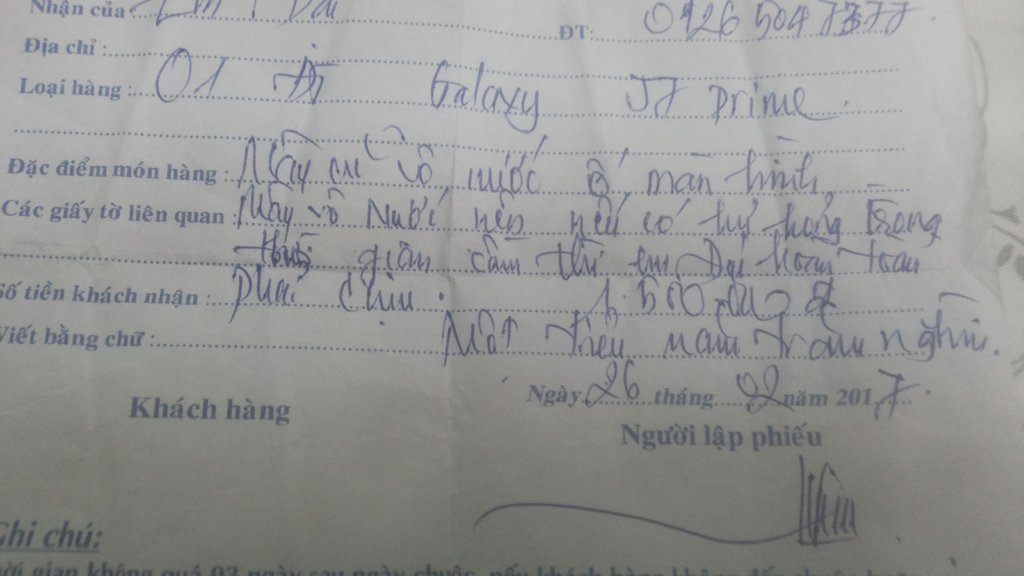 Nhận của: Em Đại ĐT: 0926 504 7377
Địa chỉ :
Loại hàng : 01 ĐT Galaxy J7 prime.
Đặc điểm món hàng : Máy cũ vô nước ố màn hình,
Các giấy tờ liên quan : Máy vô nước nên nếu có hư hỏng trong
thời gian cầm thì em Đại hoàn toàn
Số tiền khách nhận : phải chịu. 1.500.000 đ
Viết bằng chữ : Một triệu năm trăm nghìn.
Ngày 26 tháng 02 năm 2017.
Khách hàng
Người lập phiếu
Ghi chú: